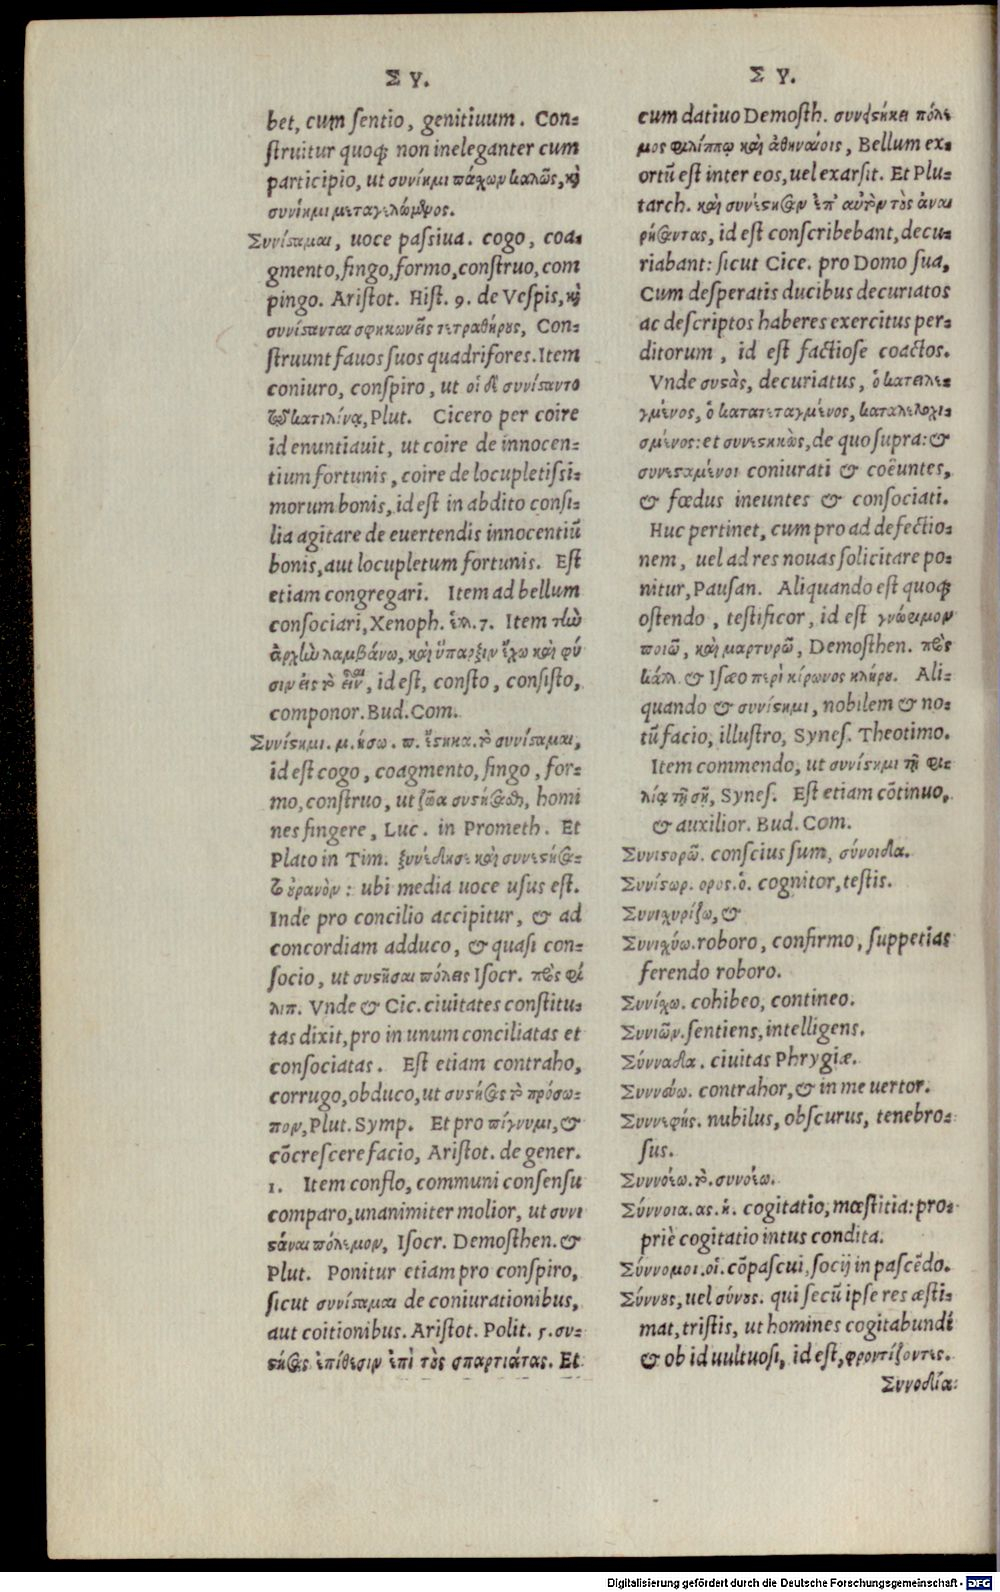 Σ Υ.
bet, cum ſentio, genitiuum. Con-
ſtruitur quoqȝ non ineleganter cum
participio, ut συνίημι πάχων καλῶς, καὶ
συνίημι μεταγελώμενος.
Συνίσαμαι, uoce paſsiua. cogo, coa-
gmento, fingo, formo, conſtruo, com
pingo. Ariſtot. Hiſt. 9. de Veſpis, καὶ
συνίσανται σφηκωνεῖς τετραθύρους, Con-
ſtruunt fauos ſuos quadrifores. Item
coniuro, conſpiro, ut οἱ δὲ συνίσαντο
τῷ κατιλίνᾳ, Plut. Cicero per coire
id enuntiauit, ut coire de innocen-
tium fortunis, coire de locupletiſsi-
morum bonis, id eſt in abdito conſi-
lia agitare de euertendis innocentiũ
bonis, aut locupletum fortunis. Eſt
etiam congregari. Item ad bellum
conſociari, Xenoph. ἑλ. 7. Item τὴν
ἀρχὴν λαμβάνω, καὶ ὕπαρξιν ἔχω καὶ φύ
σιν εἰς τὸ εἶναι, id eſt, conſto, conſiſto,
componor. Bud. Com.
Συνίσημι. μ. ήσω. π. ἕσηκα. τὸ συνίσαμαι,
id eſt cogo, coagmento, fingo, for-
mo, conſtruo, ut ζῶα συσήσασθαι, homi
nes fingere, Luc. in Prometh. Et
Plato in Tim. ξυνέδησε καὶ συνεσήσα-
το οὐρανὸν: ubi media uoce uſus eſt.
Inde pro concilio accipitur, & ad
concordiam adduco, & quaſi con-
ſocio, ut συσῆσαι πόλεις Iſocr. πρὸς φί
λιπ. Vnde & Cic. ciuitates conſtitu-
tas dixit, pro in unum conciliatas et
conſociatas. Eſt etiam contraho,
corrugo, obduco, ut συσήσας τὸ πρόσω-
πον, Plut. Symp. Et pro πήγνυμι, &
cõcreſcere facio, Ariſtot. de gener.
1. Item conflo, communi conſenſu
comparo, unanimiter molior, ut συνι
σάναι πόλεμον, Iſocr. Demoſthen. &
Plut. Ponitur etiam pro conſpiro,
ſicut συνίσαμαι de coniurationibus,
aut coitionibus. Ariſtot. Polit. 5. συ-
σήσας ἐπίθεσιν ἐπὶ τοὺς σπαρτιάτας. Et
Σ Υ.
cum datiuo Demoſth. συνέσηκει πόλε
μος φιλίππῳ καὶ ἀθηναίοις, Bellum ex-
ortũ eſt inter eos, uel exarſit. Et Plu-
tarch. καὶ συνέσησαν ἐπ' αὐτὸν τοὺς ἀναι
ρήσαντας, id eſt conſcribebant, decu-
riabant: ſicut Cice. pro Domo ſua,
Cum deſperatis ducibus decuriatos
ac deſcriptos haberes exercitus per-
ditorum, id eſt factioſe coactos.
Vnde συσὰς, decuriatus, ὁ κατειλε-
γμένος, ὁ κατατεταγμένος, καταλελοχι-
σμένος: et συνεσηκὼς, de quo ſupra: &
συνεσαμένοι coniurati & coëuntes,
& fœdus ineuntes & conſociati.
Huc pertinet, cum pro ad defectio-
nem, uel ad res nouas ſolicitare po-
nitur, Pauſan. Aliquando eſt quoqȝ
oſtendo, teſtificor, id eſt γνώριμον
ποιῶ, καὶ μαρτυρῶ, Demoſthen. πρὸς
κάλλ. & Iſæo περὶ κίρωνος κλήρου. Ali-
quando & συνίσημι, nobilem & no-
tũ facio, illuſtro, Syneſ. Theotimo.
Item commendo, ut συνίσημι τῇ φι-
λίᾳ τῇ σῇ, Syneſ. Eſt etiam cõtinuo,
& auxilior. Bud. Com.
Συνισορῶ. conſcius ſum, σύνοιδα.
Συνίσωρ. ορος. ὁ. cognitor, teſtis.
Συνιχυρίζω, &
Συνιχύω. roboro, confirmo, ſuppetias
ferendo roboro.
Συνίχω. cohibeo, contineo.
Συνιῶν. ſentiens, intelligens.
Σύνναδα. ciuitas Phrygiæ.
Συννεύω. contrahor, & in me uertor.
Συννεφής. nubilus, obſcurus, tenebro-
ſus.
Συννοέω. τὸ. συνοέω.
Σύννοια. ας. ἡ. cogitatio, mœſtitia: pro-
priè cogitatio intus condita.
Σύννομοι. οἱ. cõpaſcui, ſocij in paſcẽdo.
Σύννους, uel σύνους. qui ſecũ ipſe res æſti-
mat, triſtis, ut homines cogitabundi
& ob id uultuoſi, id eſt, φροντίζοντες.
Συνοδία:
Digitalisierung gefördert durch die Deutsche Forschungsgemeinschaft - DFG